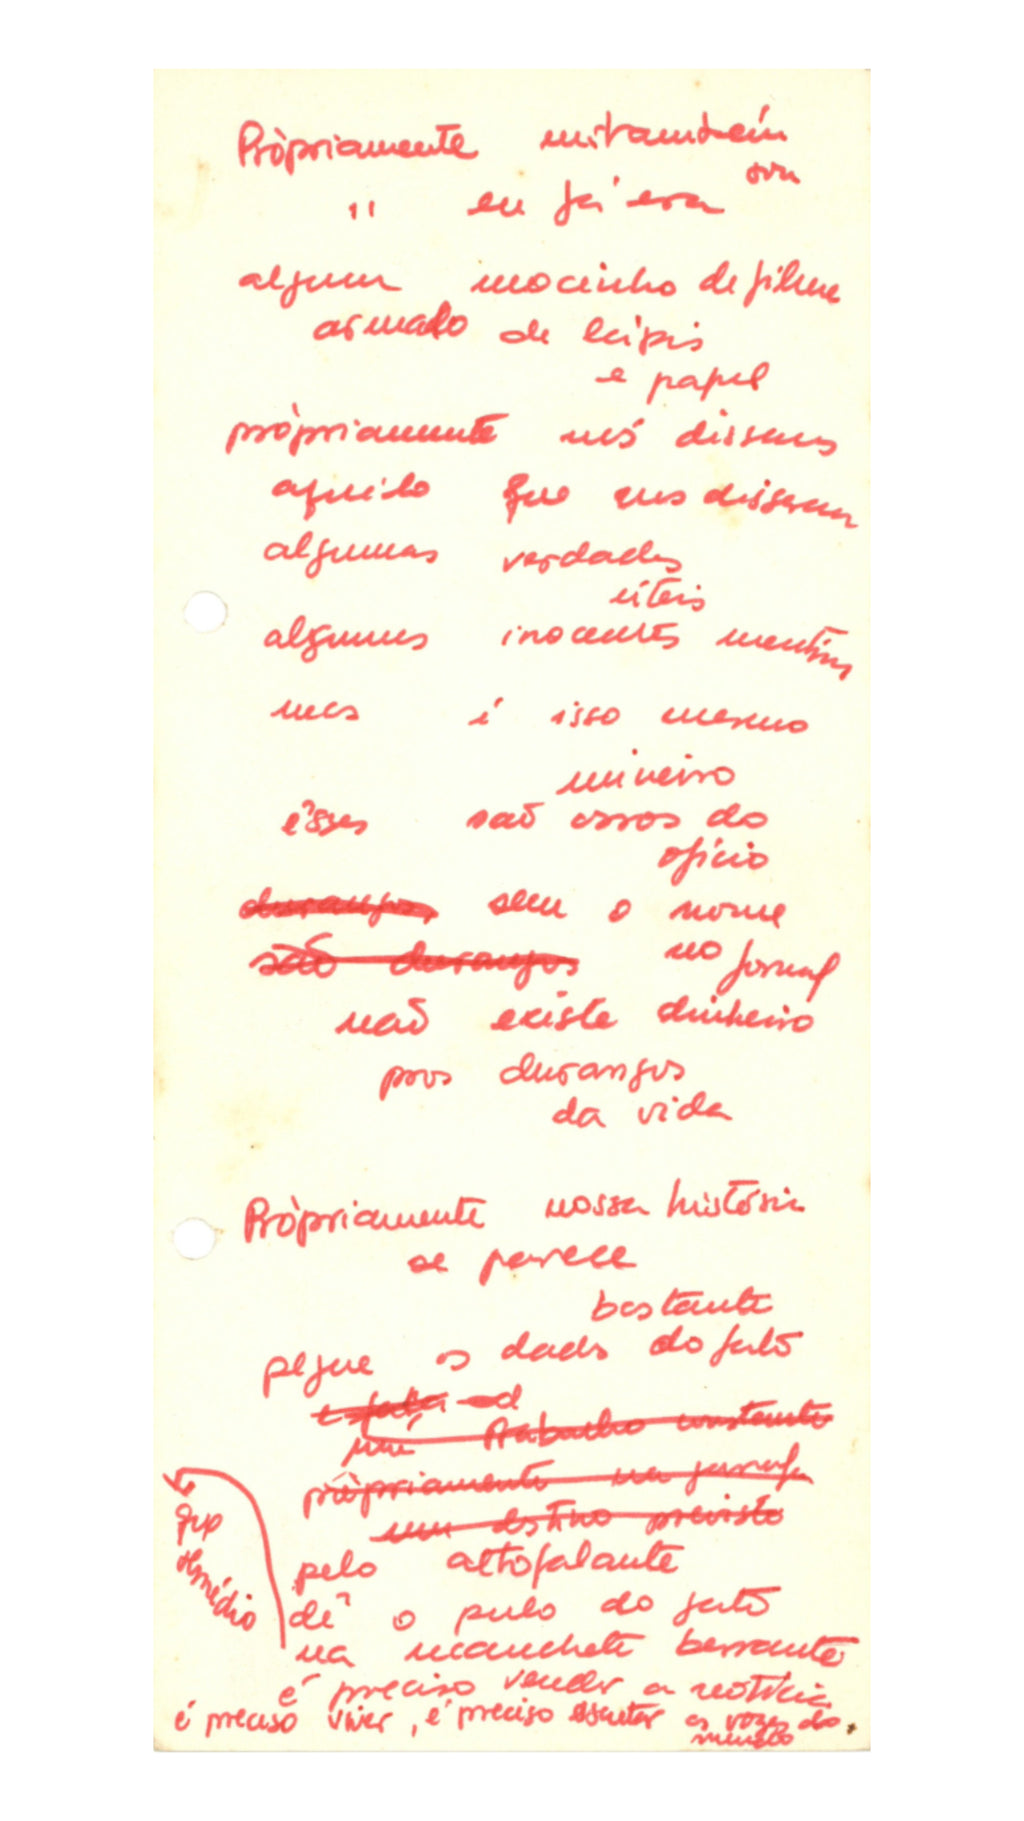 Pròpriamente mitambém
sou
" eu já era
algum mocinho de filme
armado de lápis
e papel
pròpriamente nós dissemos
aquilo que nos disseram
algumas verdades
úteis
algumas inocentes mentiras
mas é isso mesmo
mineiro
êsses são ossos do
ofício
durangos sem o nome
são durangos no jornal
não existe dinheiro
pros durangos
da vida
Pròpriamente nossa história
se parece
bastante
pegue os dados do fato
trabalho constante
pròpriamente na garrafa
um destino previsto
pelo altofalante
dê o pulo do gato
na manchete berrante
é preciso vender a notícia
é preciso viver, é preciso escutar as vozes do
mundo